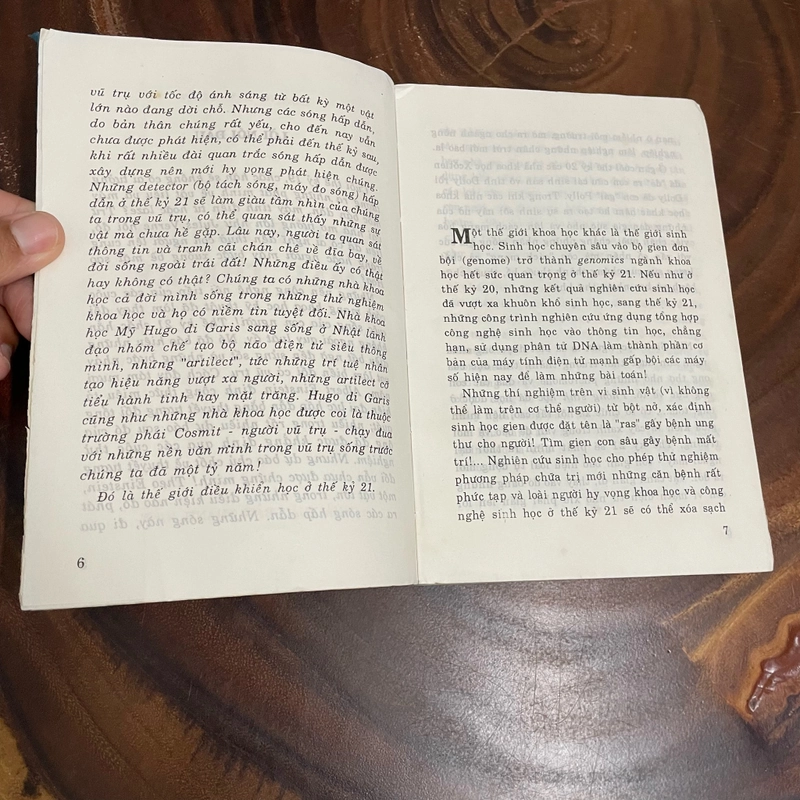 vũ trụ với tốc độ ánh sáng từ bất kỳ một vật
lớn nào đang dời chỗ. Nhưng các sóng hấp dẫn,
do bản thân chúng rất yếu, cho đến nay vẫn
chưa được phát hiện, có thể phải đến thế kỷ sau,
khi rất nhiều đài quan trắc sóng hấp dẫn được
xây dựng nên mới hy vọng phát hiện chúng.
Những detector (bộ tách sóng, máy đo sóng) hấp
dẫn ở thế kỷ 21 sẽ làm giàu tầm nhìn của chúng
ta trong vũ trụ, có thể quan sát thấy những sự
vật mà chưa hề gặp. Lâu nay, người ta quan sát
thông tin và tranh cãi chán chê về đĩa bay, về
đời sống ngoài trái đất! Những điều ấy có thật
hay không có thật? Chúng ta có những nhà khoa
học cả đời mình sống trong những thử nghiệm
khoa học và họ có niềm tin tuyệt đối. Nhà khoa
học Mỹ Hugo di Garis sang sống ở Nhật lãnh
đạo nhóm chế tạo bộ não điện tử siêu thông
minh, những "artilect", tức những trí tuệ nhân
tạo hiệu năng vượt xa người, những artilect cỡ
tiểu hành tinh hay mặt trăng. Hugo di Garis
cũng như những nhà khoa học được coi là thuộc
trường phái Cosmit - người vũ trụ - chạy đua
với những nền văn minh trong vũ trụ sống trước
chúng ta đã một tỷ năm!
Đó là thế giới điều khiển học ở thế kỷ 21.
6
Một thế giới khoa học khác là thế giới sinh
học. Sinh học chuyên sâu vào bộ gien đơn
bội (genome) trở thành genomics ngành khoa
học hết sức quan trọng ở thế kỷ 21. Nếu như ở
thế kỷ 20, những kết quả nghiên cứu sinh học
đã vượt xa khuôn khổ sinh học, sang thế kỷ 21,
những công trình nghiên cứu ứng dụng tổng hợp
công nghệ sinh học vào thông tin học, chẳng
hạn, sử dụng phân tử DNA làm thành phần cơ
bản của máy tính điện tử mạnh gấp bội các máy
số hiện nay để làm những bài toán!
Những thí nghiệm trên vi sinh vật (vì không
thể làm trên cơ thể người) từ bột nở, xác định
sinh học gien được đặt tên là "ras" gây bệnh ung
thư cho người! Tìm gien con sâu gây bệnh mất
trí!... Nghiên cứu sinh học cho phép thử nghiệm
phương pháp chữa trị mới những căn bệnh rất
phức tạp và loài người hy vọng khoa học và công
nghệ sinh học ở thế kỷ 21 sẽ có thể xóa sạch
7